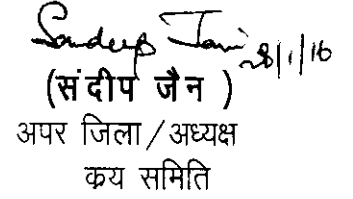 Sandeep Jain 28/1/16
(संदीप जैन )
अपर जिला/अध्यक्ष
क्रय समिति